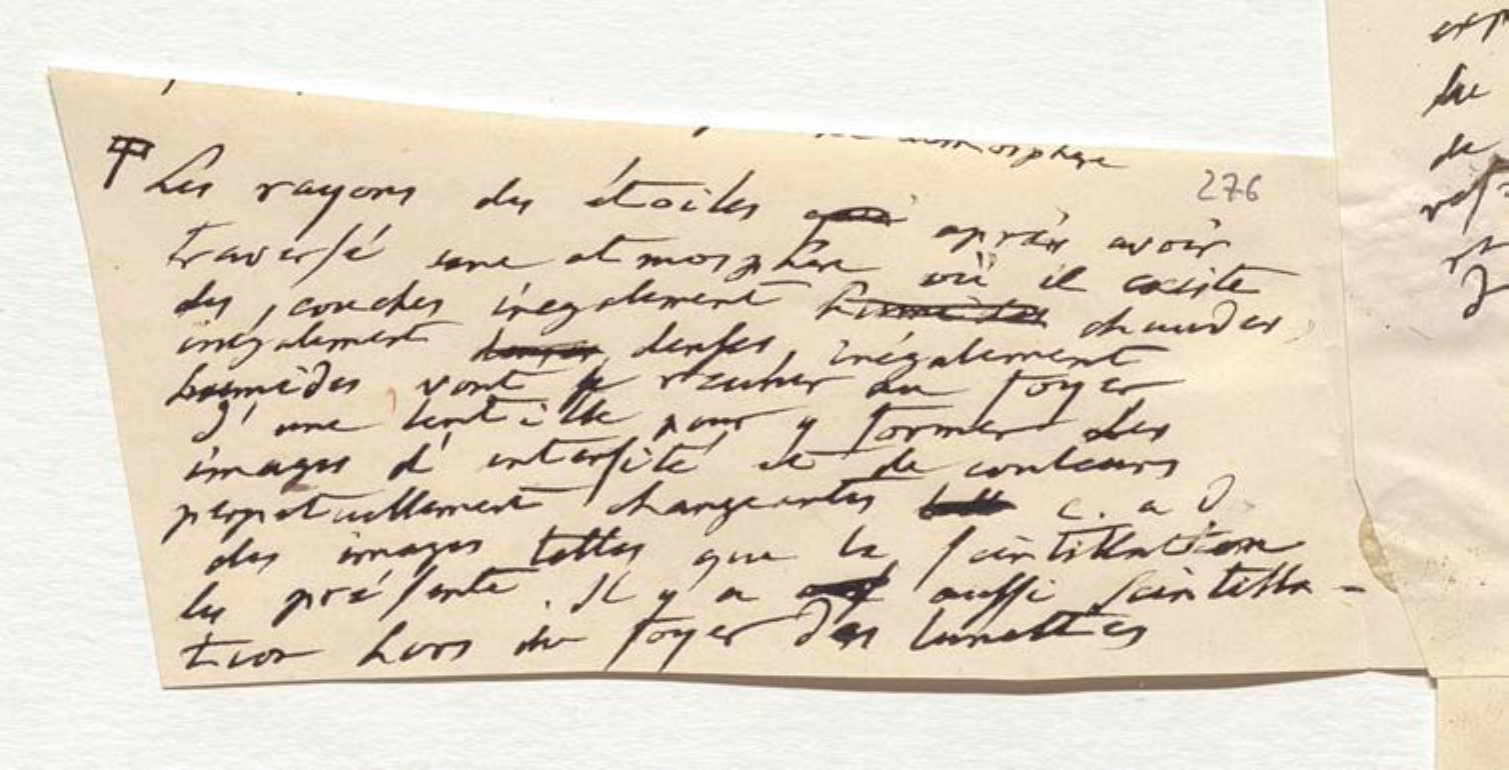 atmosphere
276
Les rayons des étoiles qui après avoir
traversé une atmosphère où il existe
des couches inegalement humides chaudes,
inégalement denses, inégalement
humides vont se réunir au foyer
d'une lentille pour y former des
images d'intensité et de couleurs
perpetuellement changeantes c. a d.
des images telles que la scintillation
les présente. Il y a aussi scintilla-
tion hors du foyer des lunettes